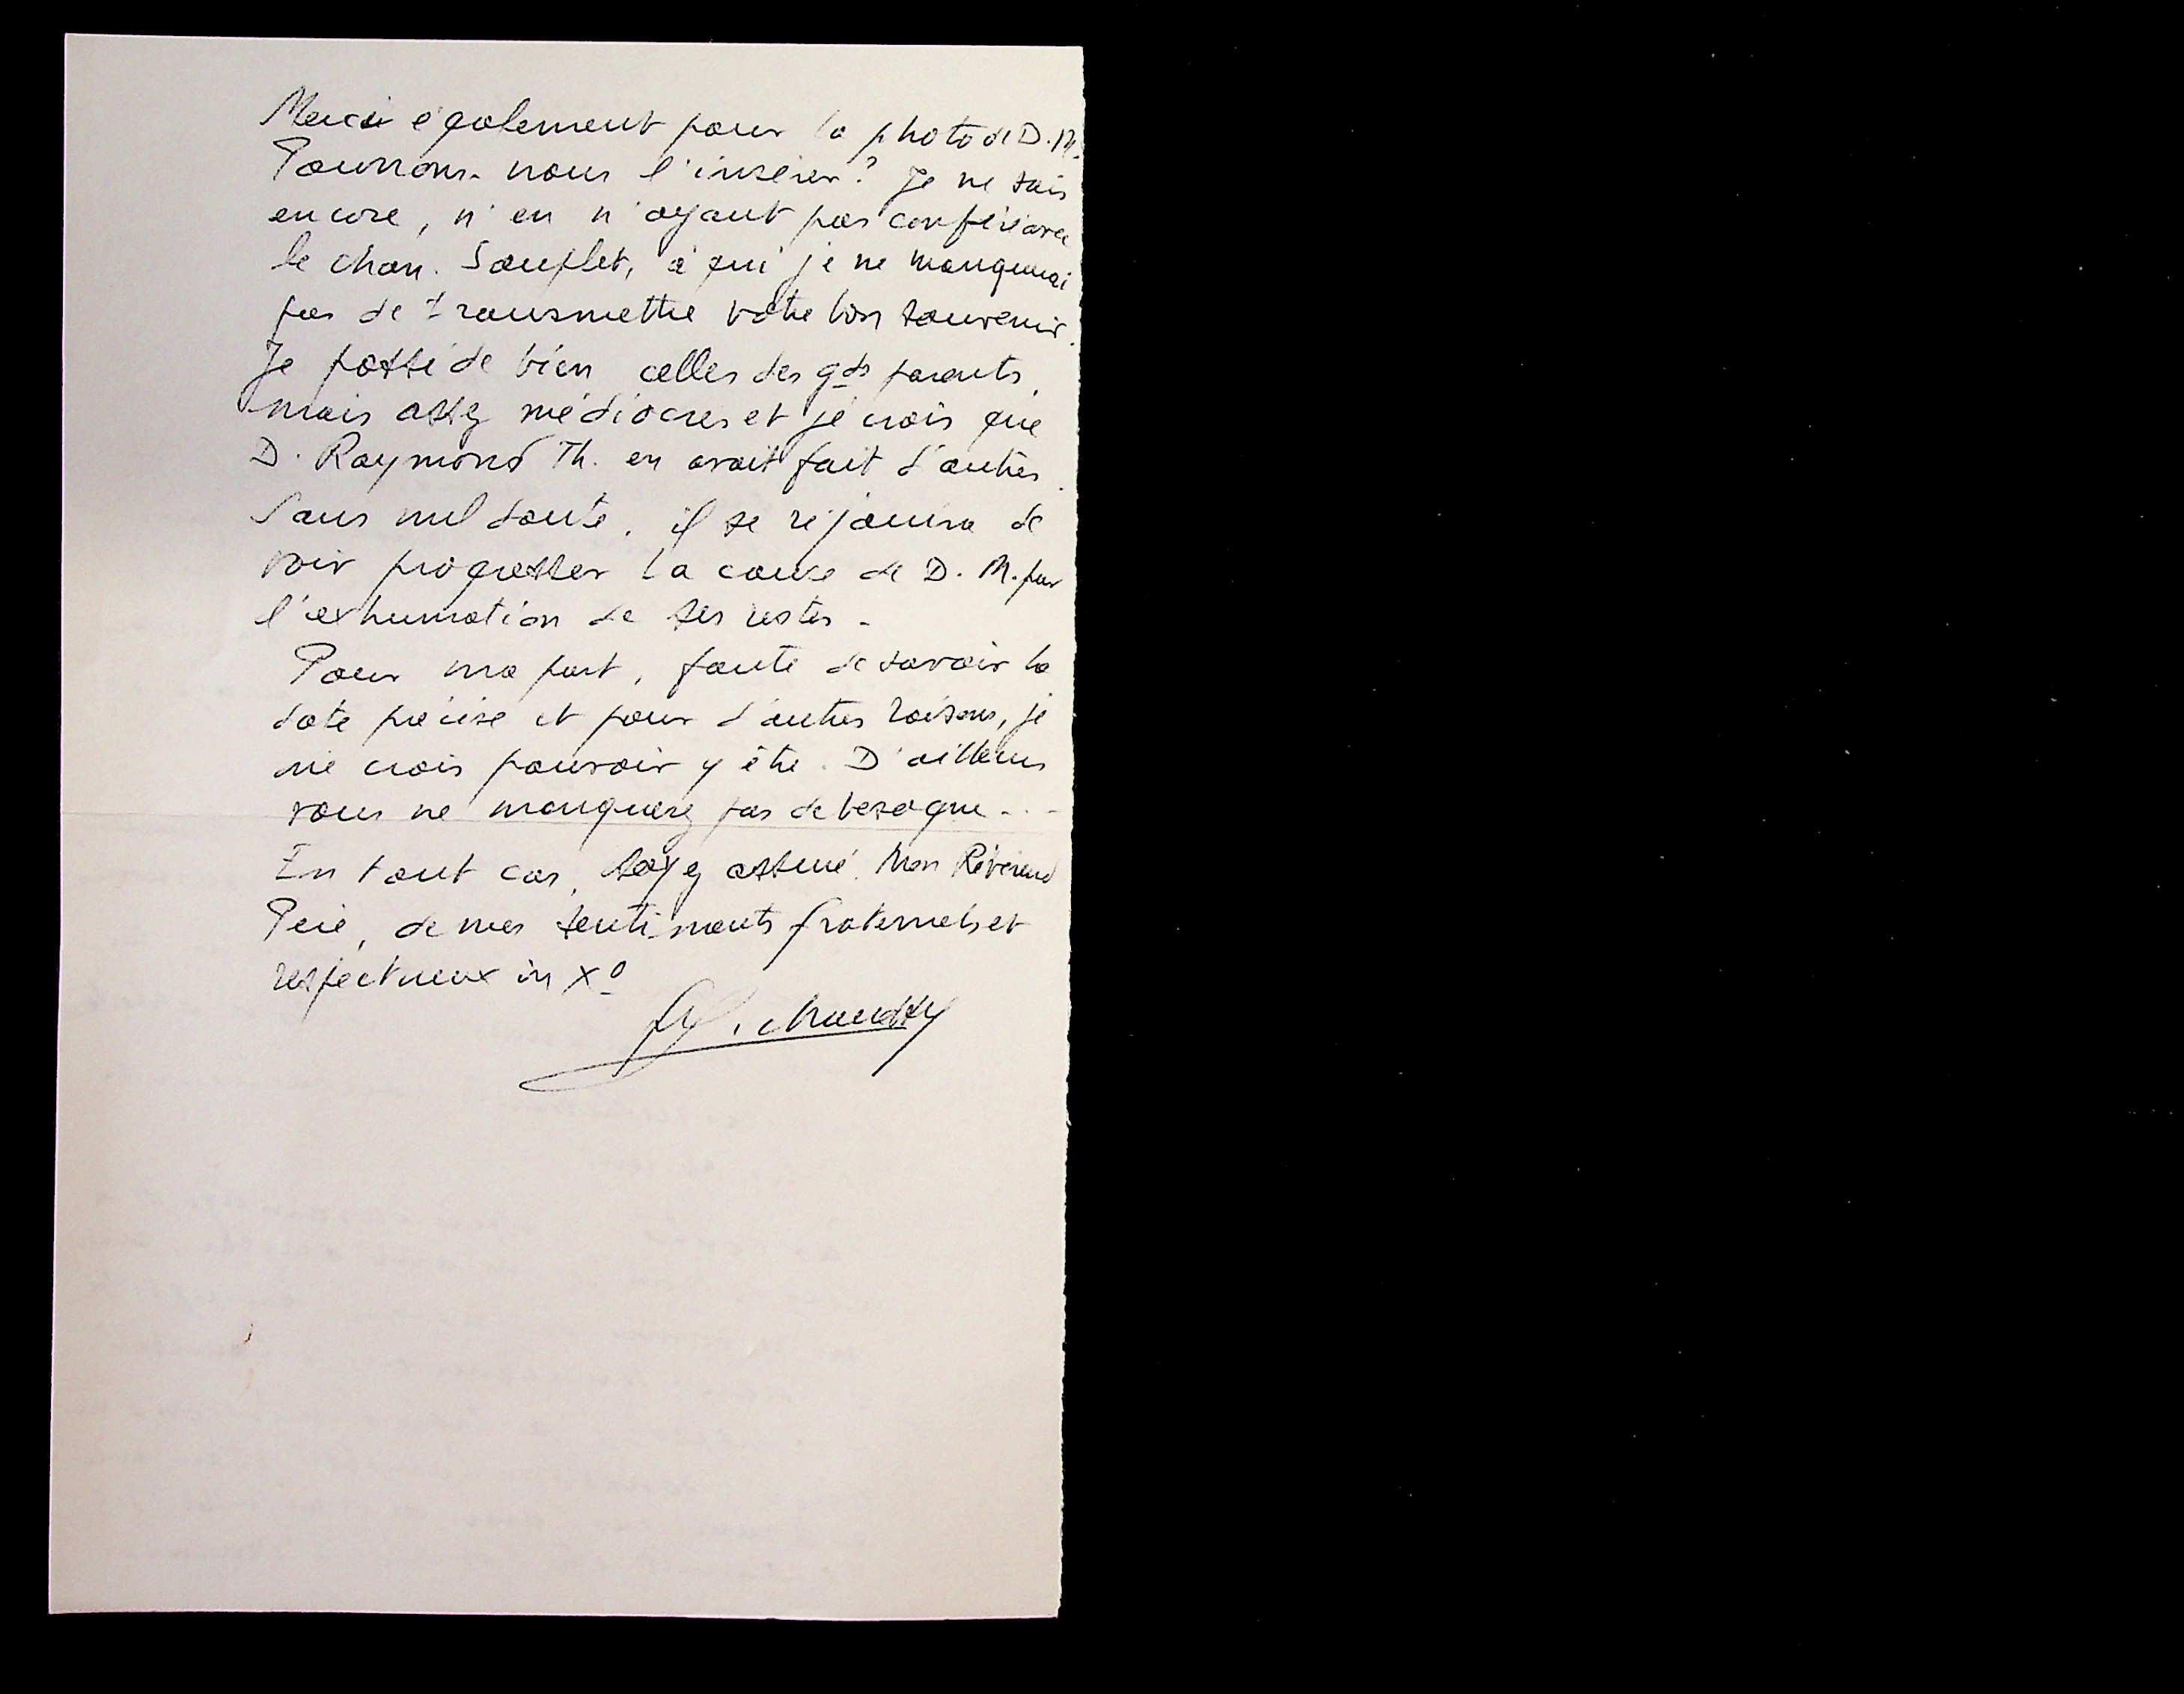 Merci également pour la photo de D. M.
Pourrons-nous l'insérer? Je ne sais
encore, n'en n'ayant pas conféré avec
le chan. Souflet, à qui je ne manquerai
pas de transmettre votre bon souvenir.
Je possède bien celles des gds parents,
mais assez médiocres et je crois que
D. Raymond Th. en avait fait d'autres.
Sans nul doute, il se réjouira de
voir progresser la cause de D. M. par
l'exhumation de ses restes.
Pour ma part, faute de savoir la
date précise et pour d'autres raisons, je
ne crois pouvoir y être. D'ailleurs
vous ne manquerez pas de besogne...
En tout cas, soyez assuré, Mon Révérend
Père, de mes sentiments fraternels et
respectueux in Xo